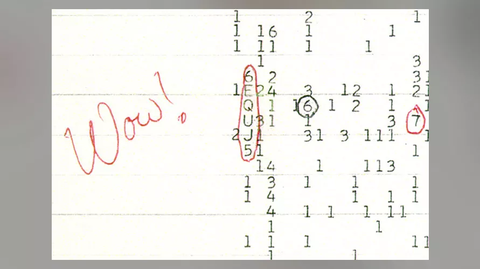 1 2 1
1 16 1 1
1 11 1 1
1 3
6 2 31
1 E24 3 12 1 21
Wow!
Q 1 16 1 2 1 1
U31 1 3 7
2 J1 31 3 111 1
51 1
14 1 113
1 3 1 1 1
1 4 1 1 1
4 1 1 1 11
1 1
1 1 1 1 11
1 1